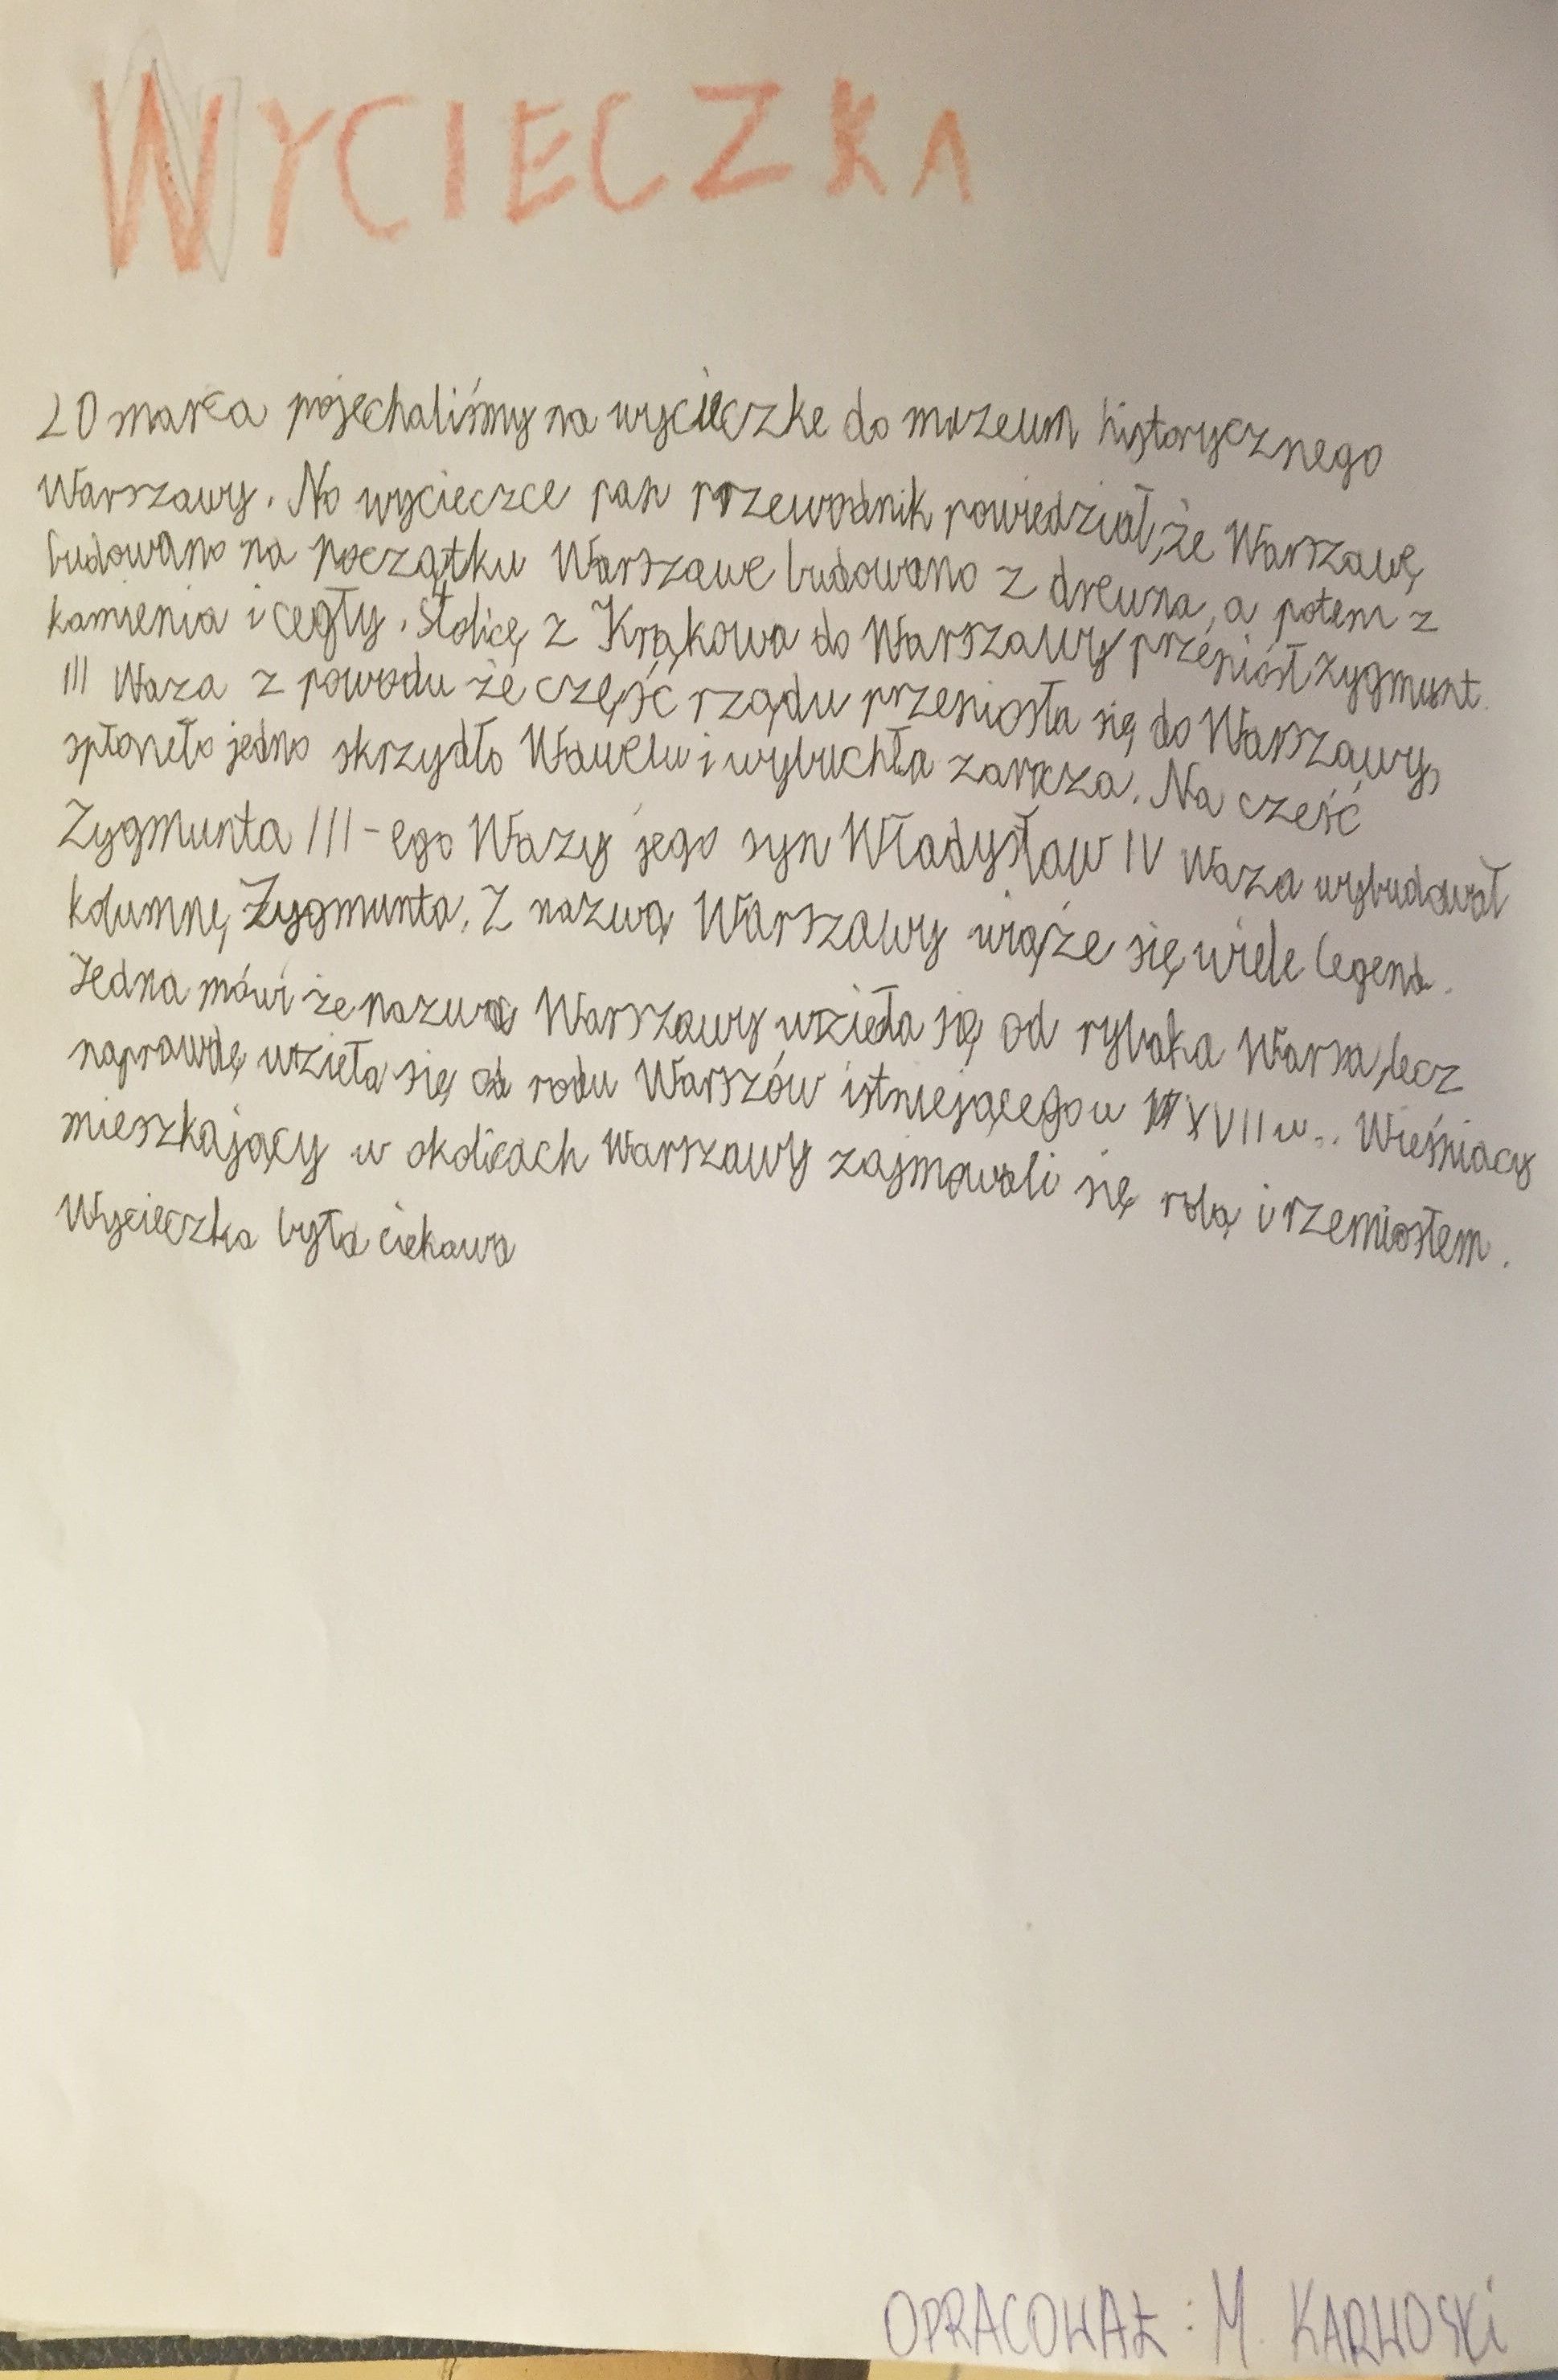 WYCIECZKA
20 marca pojechaliśmy na wycieczke do muzeum historycznego
Warszawy. Na wycieczce pan przewodnik powiedział, że Warszawę
budowano na początku Warszawe budowano z drewna, a potem z
kamienia i cegły. Stolicę z Krąkowa do Warszawy przeniósł Zygmunt
III Waza z powodu że część rządu przeniosła się do Warszawy,
spłoneło jedno skrzydło Wawelu i wybuchła zaraza. Na cześć
Zygmunta III-ego Wazy jego syn Władysław IV Waza wybudował
kolumnę Zygmunta. Z nazwą Warszawy wiąże się wiele legend.
Jedna mówi że nazwa Warszawy wzieła się od rybaka Warsa, lecz
naprawdę wzieła się od rodu Warszów istniejącego w XVII w.. Wieśniacy
mieszkający w okolicach Warszawy zajmowali się rolą i rzemiosłem.
Wycieczka była ciekawa
OPRACOWAŁ: M. KARWOSKI